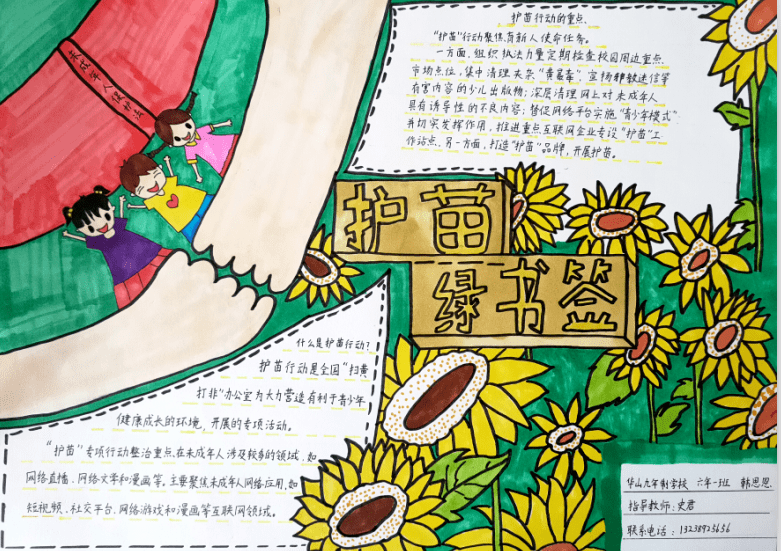 未成年人保护法
护苗行动的重点、
“护苗”行动聚焦育新人使命任务。
一方面,组织执法力量定期检查校园周边重点
市场点位,集中清理夹杂“黄暴毒”、宣扬邪教迷信等
有害内容的少儿出版物;深层清理网上对未成年人
具有诱导性的不良内容;督促网络平台实施“青少年模式”
并切实发挥作用,推进重点互联网企业专设“护苗”工
作站点、另一方面,打造“护苗”品牌,开展护苗。
护苗
绿书签
什么是护苗行动?
护苗行动是全国“扫黄
打非”办公室为大力营造有利于青少年
健康成长的环境,开展的专项活动。
“护苗”专项行动整治重点,在未成年人涉及较多的领域、如
网络直播、网络文学和漫画等。主要聚焦未成年人网络应用,如
短视频、社交平台、网络游戏和漫画等互联网领域。
华山九年制学校 六年一班 韩思恩
指导教师:史君
联系电话:13238925656